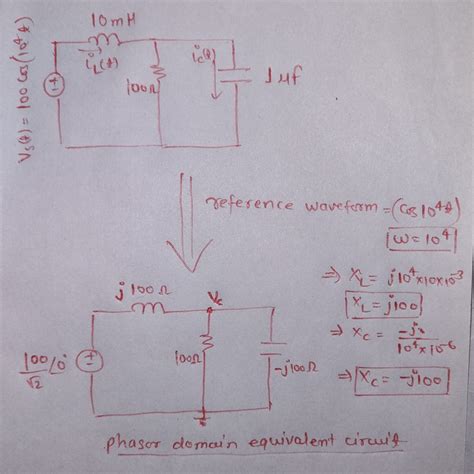 10mH
Vs(t) = 100 cos(10⁴t)
iL(t)
100Ω
ic(t)
1μf
reference waveform = (Cos10⁴t)
ω = 10⁴
⇒ XL = j10⁴×10×10⁻³
XL = j100
⇒ Xc = -j
10⁴×10⁻⁶
⇒ Xc = -j100
j100Ω
Vc
100/√2 ∠0°
100Ω
-j100Ω
phasor domain equivalent circuit